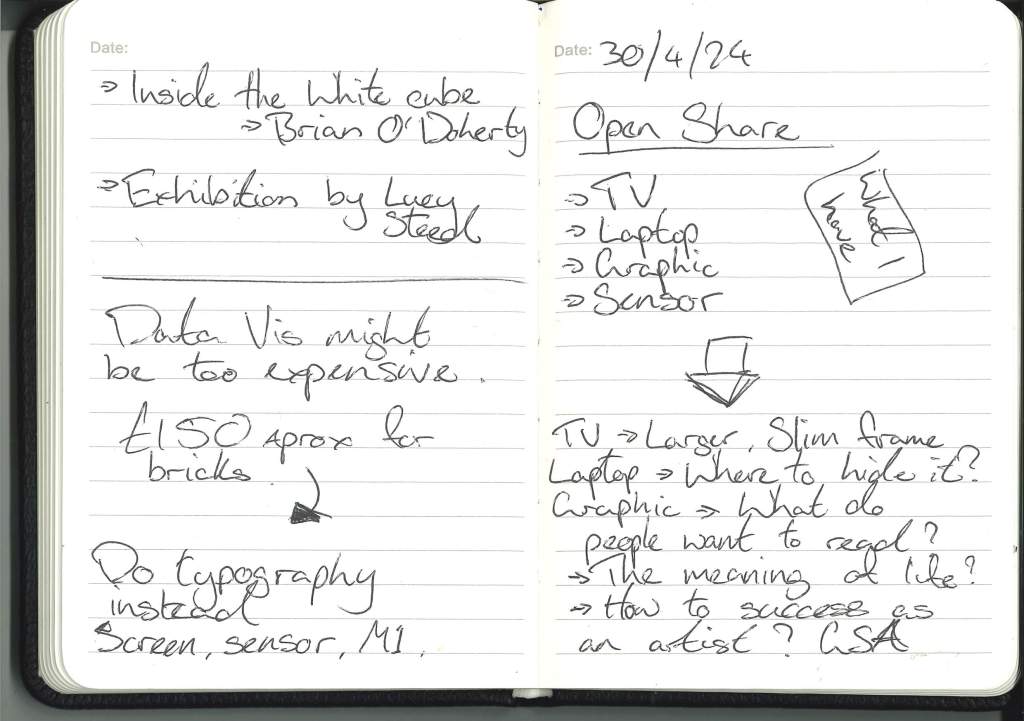 Date:
⇒ Inside the White cube
⇒ Brian O'Doherty
⇒ Exhibition by Lucy
Steed
Data Vis might
be too expensive.
£150 Aprox for
bricks
Do typography
instead
Screen, sensor, M1.
Date: 30/4/24
Open Share
⇒ TV
⇒ Laptop
⇒ Graphic
⇒ Sensor
What I
have
TV ⇒ Larger, Slim frame
Laptop ⇒ Where to hide it?
Graphic ⇒ What do
people want to read?
⇒ The meaning of life?
⇒ How to success as
an artist? GSA